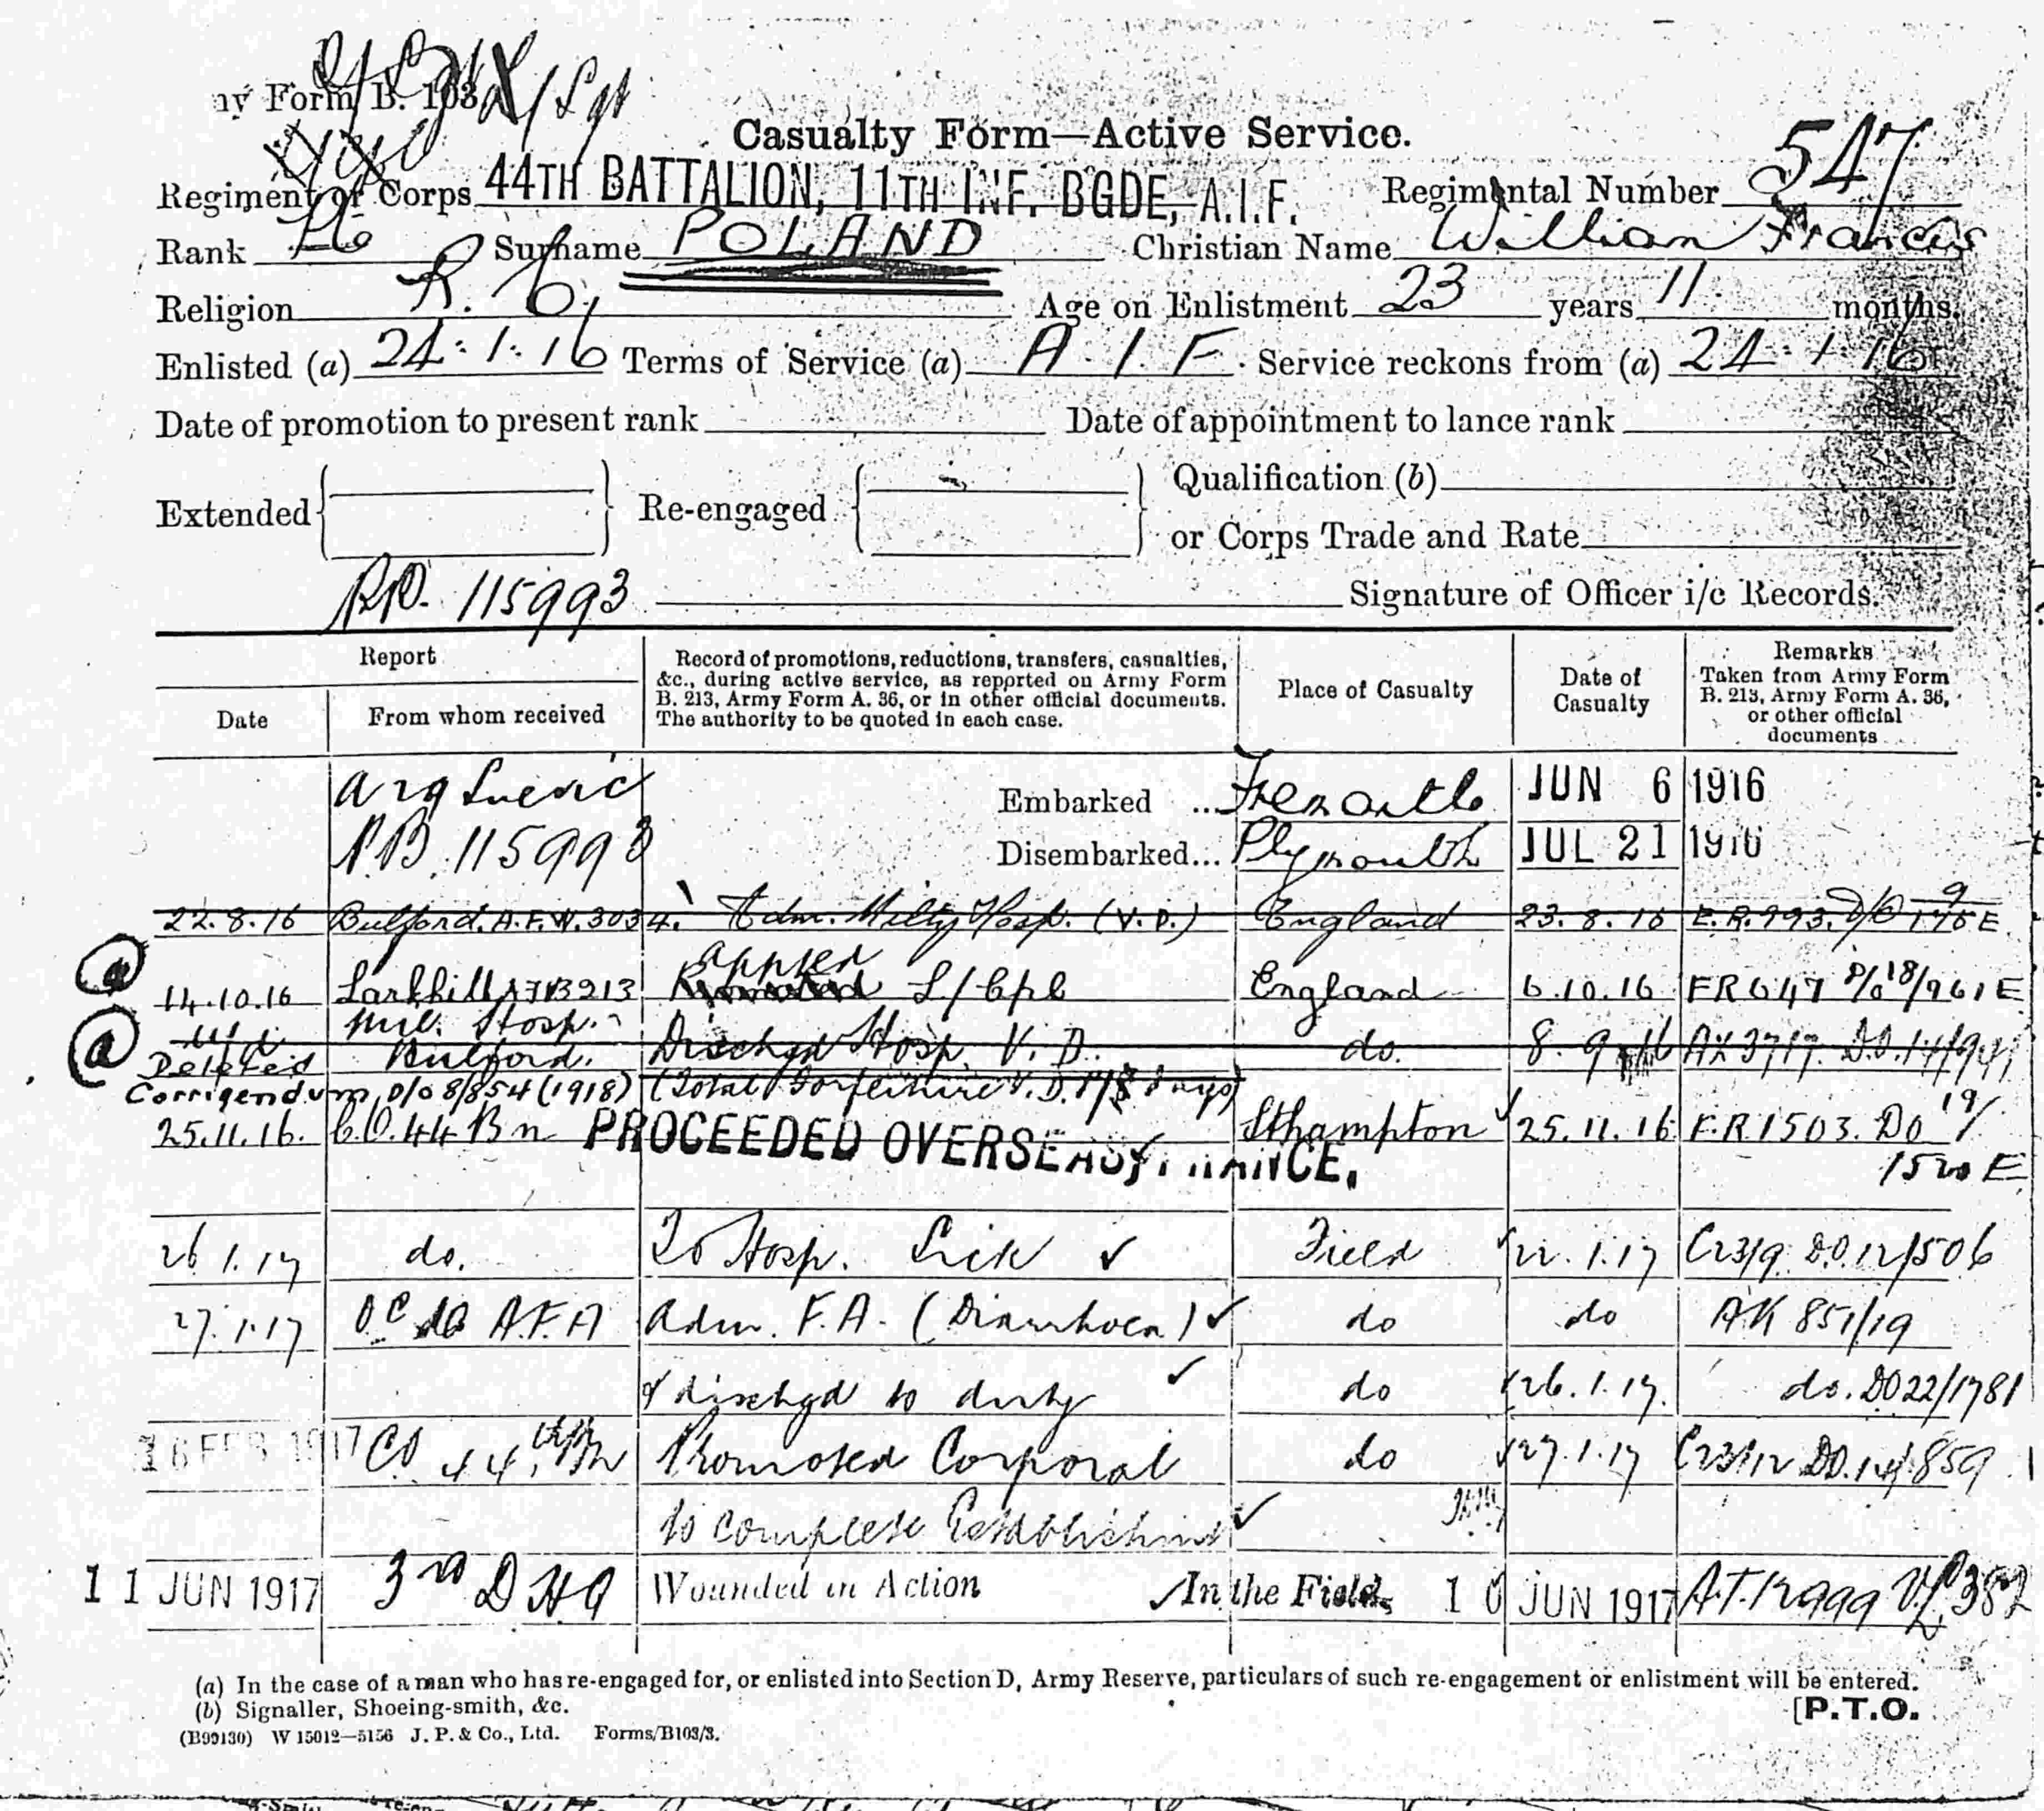 ny Form B. 103
L/Sgt
Casualty Form—Active Service.
Regiment or Corps 44TH BATTALION, 11TH INF. BGDE, A.I.F. Regimental Number 547
Rank Surname POLAND Christian Name William Francis
Religion R. C. Age on Enlistment 23 years 11 months.
Enlisted (a) 24.1.16 Terms of Service (a) A.I.F. Service reckons from (a) 24.1.16
Date of promotion to present rank Date of appointment to lance rank
Extended Re-engaged Qualification (b)
or Corps Trade and Rate
115993 Signature of Officer i/c Records.
Report
Date From whom received
Record of promotions, reductions, transfers, casualties,
&c., during active service, as reported on Army Form
B. 213, Army Form A. 36, or in other official documents.
The authority to be quoted in each case.
Place of Casualty
Date of
Casualty
Remarks
Taken from Army Form
B. 213, Army Form A. 36,
or other official
documents
Embarked ... Fremantle JUN 6 1916
115993 Disembarked... Plymouth JUL 21 1916
22.8.16 Bulford. A.F.W. 3034. Adm. Milty Hosp. (V.D.) England 23.8.16 E.R. 993. D/O
appted
14.10.16 Larkhill AFB213 Promoted L/Cpl England 6.10.16 ER647 D/O 18/961E
Mil. Hosp.
Deleted Bulford. Dischgd Hosp. V.D. do. 8.9.16 AK3717. D.O.
Corrigendum D/O 8/854 (1918) (Total forfeiture V.D. days)
25.11.16. C.O. 44 Bn PROCEEDED OVERSEAS, FRANCE. Sthampton 25.11.16 E.R. 1503. DO 19/
1520 E
26.1.17 do. To Hosp. Sick Field 22.1.17 C23/9 D.O. 12/506
27.1.17 OC A.F.A Adm. F.A. (Diarrhoea) do do AK 851/19
& dischgd to duty do 26.1.17. do. DO 22/1781
16 FEB 1917 CO 44th Bn Promoted Corporal do 27.1.17 C23/12 DO. 14/859
to complete Establishment
11 JUN 1917 3rd DHQ Wounded in Action In the Field. 10 JUN 1917 382
(a) In the case of a man who has re-engaged for, or enlisted into Section D, Army Reserve, particulars of such re-engagement or enlistment will be entered.
(b) Signaller, Shoeing-smith, &c.
[P.T.O.
(B99130) W 15012—5156 J. P. & Co., Ltd. Forms/B103/3.